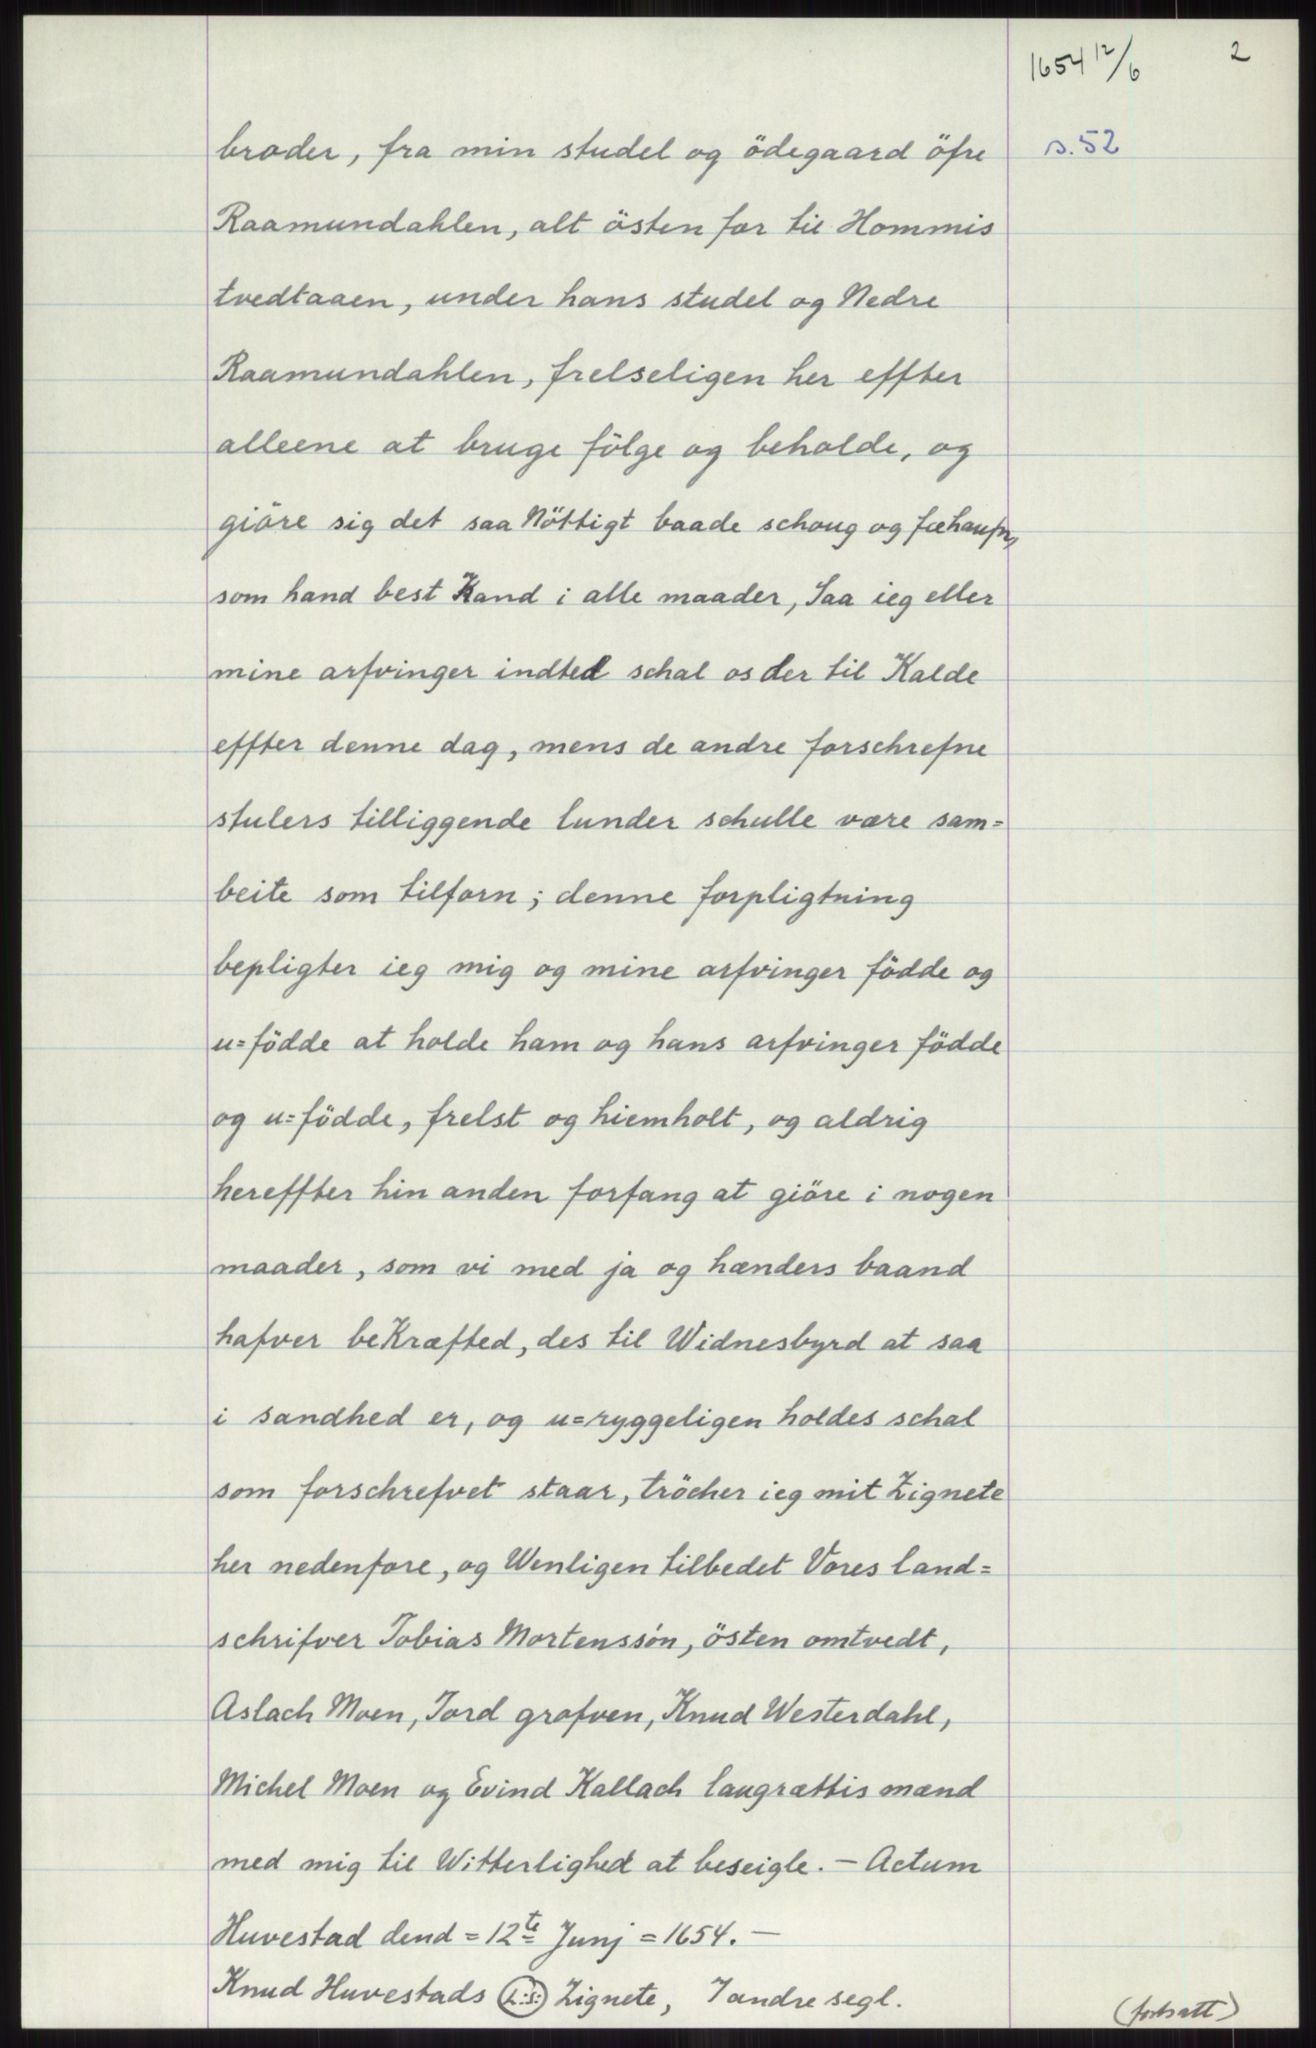 1654 12/6
2
broder, fra min studel og ödegaard öfre
s. 52
Raamundahlen, alt östen for til Hommis
tvedtaaen, under hans studel og Nedre
Raamundahlen, frelseligen her effter
alleene at bruge fölge og beholde, og
giöre sig det saa Nöttigt baade schoug og fæhaufn,
som hand best Kand i alle maader, Saa ieg eller
mine arfvinger indted schal os der til Kalde
effter denne dag, mens de andre forschrefne
stulers tilliggende lunder schulle være sam=
beite som tilforn; denne forpligtning
bepligter ieg mig og mine arfvinger födde og
u=födde at holde ham og hans arfvinger födde
og u=födde, frelst og hiemholt, og aldrig
hereffter hin anden forfang at giöre i nogen
maader, som vi med ja og hænders baand
hafver beKræfted, des til Widnesbyrd at saa
i sandhed er, og u=ryggeligen holdes schal
som forschrefvet staar, tröcher ieg mit Zignete
her nedenfore, og Wenligen tilbedet Vores land=
schrifver Tobias Mortenssön, östen omtvedt,
Aslach Moen, Tord grafven, Knud Westerdahl,
Michel Moen og Evind Kallach laugrættis mænd
med mig til Witterlighed at beseigle. — Actum
Huvestad dend = 12te Junj = 1654. —
Knud Huvestads L:S: Zignete, 7 andre segl.
(fortsatt)